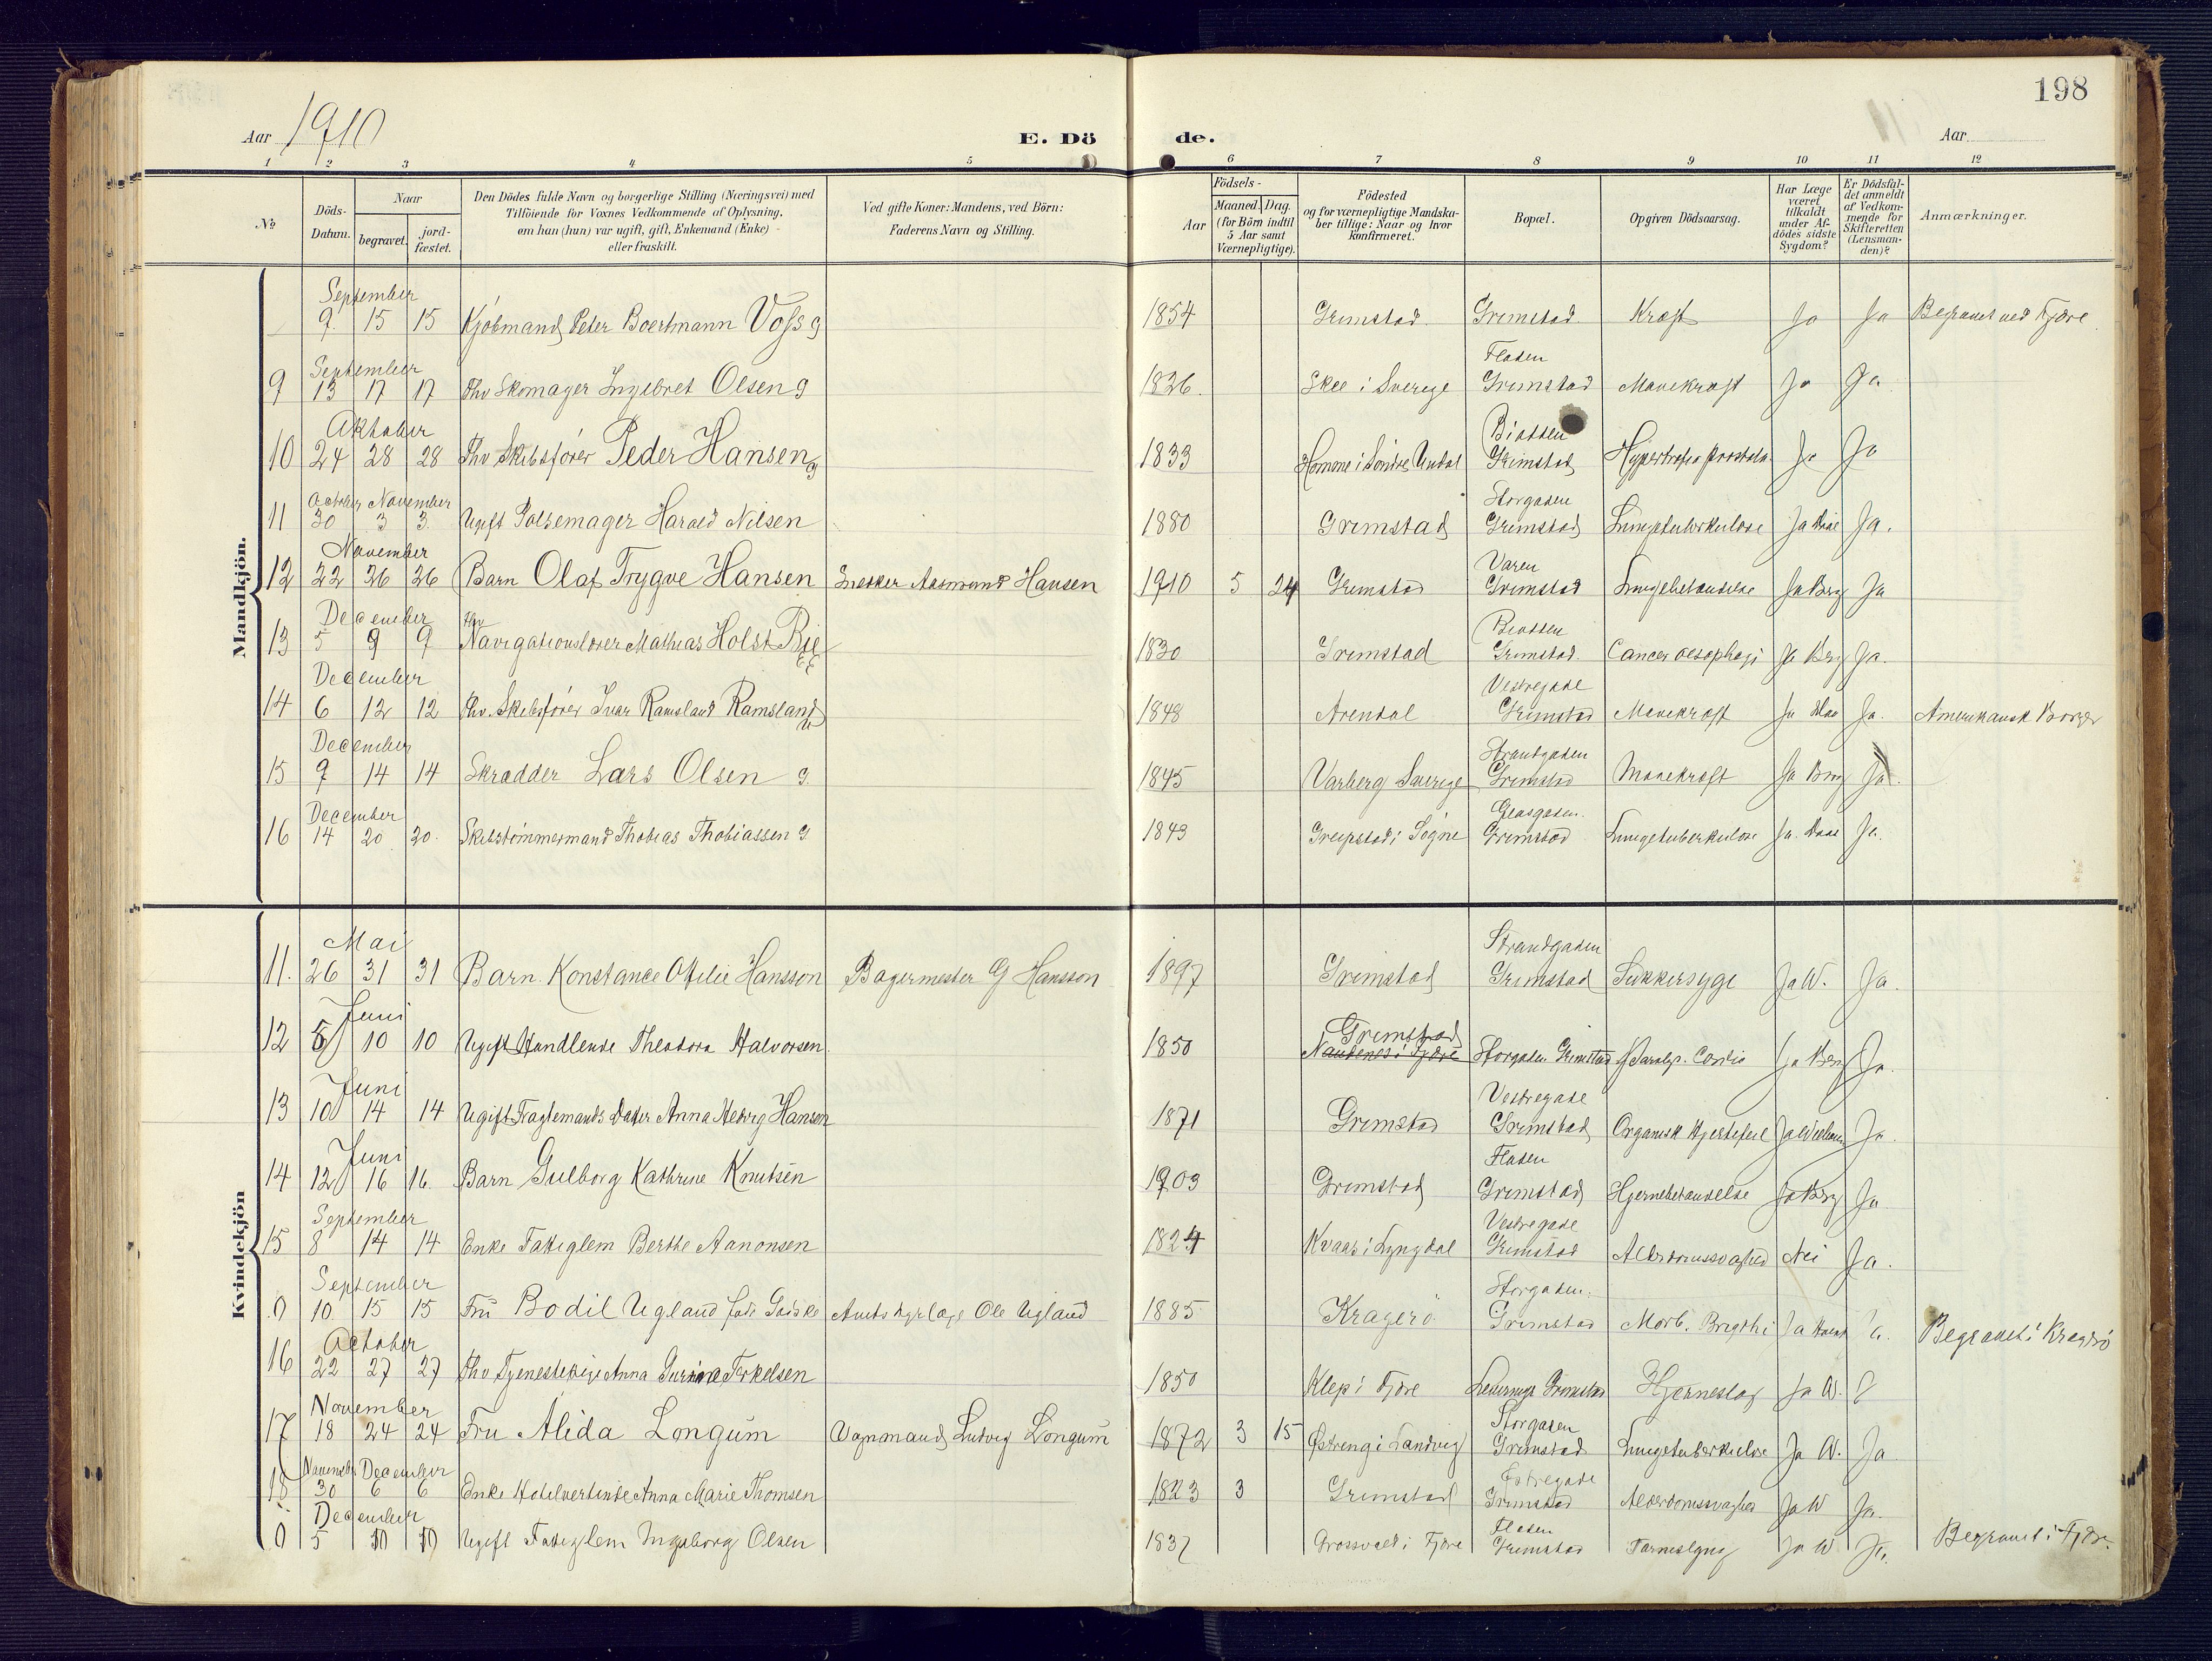 198
Aar 1910
E. Döde.
Aar
1 2 3 4 5 6 7 8 9 10 11 12
No
Döds-Datum.
Naar
begravet.
jord-fæstet.
Den Dödes fulde Navn og borgerlige Stilling (Næringsvei) med
Tilföiende for Voxnes Vedkommende af Oplysning,
om han (hun) var ugift, gift, Enkemand (Enke)
eller fraskilt.
Ved gifte Koner: Mandens, ved Börn:
Faderens Navn og Stilling.
Födsels-
Aar
Maaned. Dag.
(for Börn indtil
5 Aar samt
Værnepligtige).
Födested
og for værnepligtige Mandska-
ber tillige: Naar og hvor
konfirmeret.
Bopæl.
Opgiven Dödsaarsag.
Har Læge
været
tilkaldt
under Af-
dödes sidste
Sygdom?
Er Dödsfal-
det anmeldt
af Vedkom-
mende for
Skifteretten
(Lensman-
den)?
Anmærkninger.
Mandkjön.
September
9. 15 15 Kjøbmand Peter Boertmann Voss g 1854 Grimstad Grimstad Kræft Ja Ja Begravet ved Fjære
September Fladen
9 13 17 17 Fhv Skomager Ingebret Olsen g 1826. Skee i Sverige Grimstad Mavekræft Ja Ja
Oktober Biodden
10 24 28 28 Fhv Skibsfører Peder Hansen g 1833 Homme i Söndre Undal Grimstad Hypertrofia prostata Ja Ja
October November Storgaden
11 30 3 3. Ugift Pølsemager Harald Nilsen 1880 Grimstad Grimstad Lungetuberkulose Ja Daae Ja.
November Varen
12 22 26 26 Barn Olaf Trygve Hansen Snekker Aasmund Hansen 1910 5 24 Grimstad Grimstad Lungebetændelse Ja Berg Ja
December Biodden
13 5 9 9 Fhv Navigationslærer Mathias Holst Rie E 1830 Grimstad Grimstad. Cancer oesophagi Ja Berg Ja.
December Vestregade
14 6 12 12 Fhv. Skibsfører Ivar Ramsland Ramsland u 1848 Arendal Grimstad Mavekræft Ja Ja. Amerikansk Borger
December Strandgaden
15 9 14 14 Skrædder Lars Olsen g 1845 Varberg Sverige Grimstad Mavekræft Ja Berg Ja.
December
16 14 20 20. Skibstømmermand Thobias Thobiassen g 1843 Greipstad i Søgne Grimstad Lungetuberkulose Ja. Daae Ja.
Kvindekjön
Mai Strandgaden
11. 26 31 31 Barn. Konstance Otilie Hansson Bagermester G Hansson 1897 Grimstad Grimstad Sukkersyge Ja W. Ja.
Juni Grimstad
12 5 10 10 Ugift Handlende Theodora Halvorsen. 1850 i Fjære Storgaden Grimstad Paralys. Cordis Ja Berg Ja.
Juni Vestregade
13 10 14 14 Ugift Fragtemands Datter Anna Hedvig Hansen 1871 Grimstad Grimstad Organisk Hjertefeil Ja Ja.
Juni Fladen
14 12 16 16. Barn Gulborg Kathrine Knutsen 1903 Grimstad Grimstad Hjernebetændelse Ja Berg Ja
September Vestregade
15 8 14 14 Enke Fattiglem Berthe Aanonsen 1824 Kvaas i Lyngdal Grimstad Alderdomssvaghed Nei Ja.
September Storgaden.
0 10. 15 15 Fru Bodil Ugland født Amts Ole Ugland 1885 Kragerö Grimstad Morb. Brigthi Ja Begravet i Kragerø
October
16 22 27 27 Fhv Tjenestepige Anna Terkelsen 1850 Klep i Fjære Grimstad Hjerneslag Ja W.
November Storgaden
17 18 24 24 Fru Alida Longum Vognmand Ludvig Longum 1872 3 15 Østreng i Landvig Grimstad Lungetuberkulose Ja W. Ja
November December Østregade
18 30 6 6 Enke Hotelvertinde Anna Marie Thomsen 1823 3 Grimstad Grimstad Alderdomssvaghed Ja W Ja.
December Fladen
0 5 10 10 Ugift Fattiglem Ingeborg Olsen 1837 i Fjære Grimstad Ja W Ja. Begravet i Fjære.